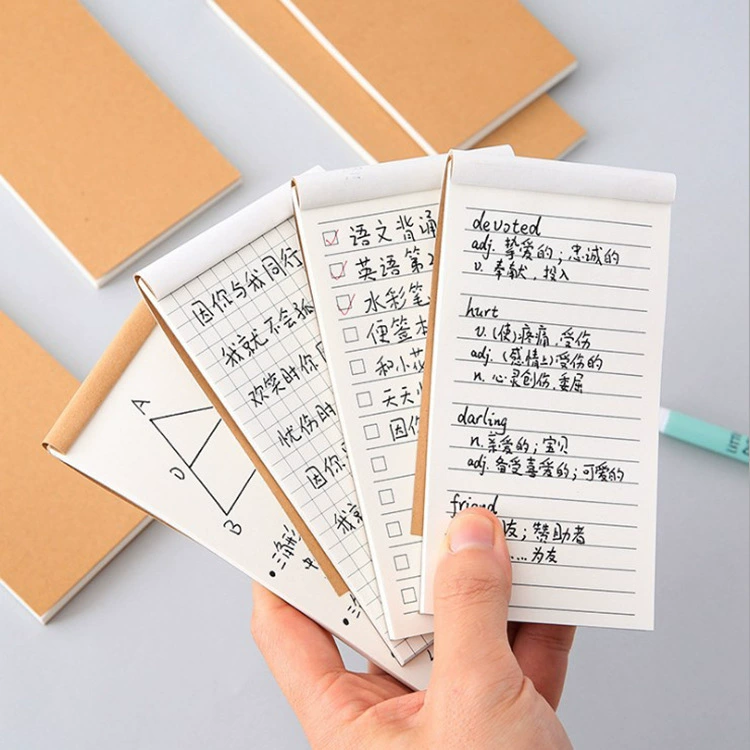 A
D
B
因你与我同行
我就不会孤
欢笑时你
忧伤时
因你
我就
语文背诵
英语第2
水彩笔
便签本
和小花
天天
因你
devoted
adj. 挚爱的；忠诚的
v. 奉献，投入
hurt
v. (使)疼痛，受伤
adj. (感情上)受伤的
n. 心灵创伤，委屈
darling
n. 亲爱的；宝贝
adj. 备受喜爱的；可爱的
friend
友；赞助者
……为友